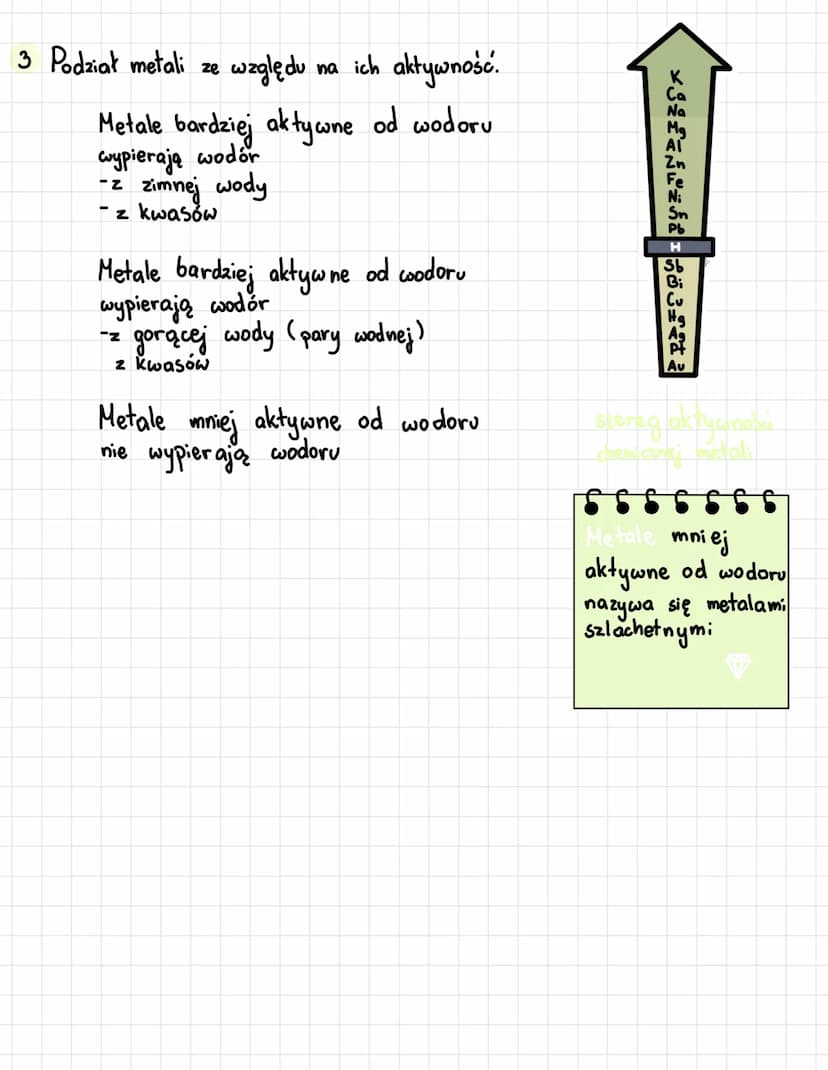 3 Podział metali ze względu na ich aktywność.
Metale bardziej aktywne od wodoru
wypierają wodór
-z zimnej wody
- z kwasów
Metale bardziej aktywne od wodoru
wypierają wodór
-z gorącej wody (pary wodnej)
z kwasów
Metale mniej aktywne od wodoru
nie wypierają wodoru
K
Ca
Na
Mg
Al
Zn
Fe
Ni
Sn
Pb
H
Sb
Bi
Cu
Hg
Ag
Pt
Au
szereg aktywności
chemicznej metali
Metale mniej
aktywne od wodoru
nazywa się metalami
szlachetnymi